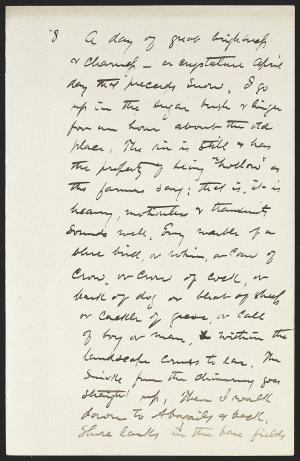 8 A day of great brightness
& clearness – a crystalline April
day that precedes snow. I go
up in the sugar bush & linger
for an hour about the old
place. The air is still & has
the property of being "hollow" as
the farmers say; that is, it is
heavy, motionless & transmits
sounds well. Every warble of a
blue bird, or robin, or caw of
crow, or crow of cock, or
bark of dog or bleat of sheep
or cackle of geese, or call
of boy or man, within the
landscape comes to ear. The
smoke from the chimneys goes
straight up. Then I walk
down to Abagails & back.
Shore larks in the bare fields